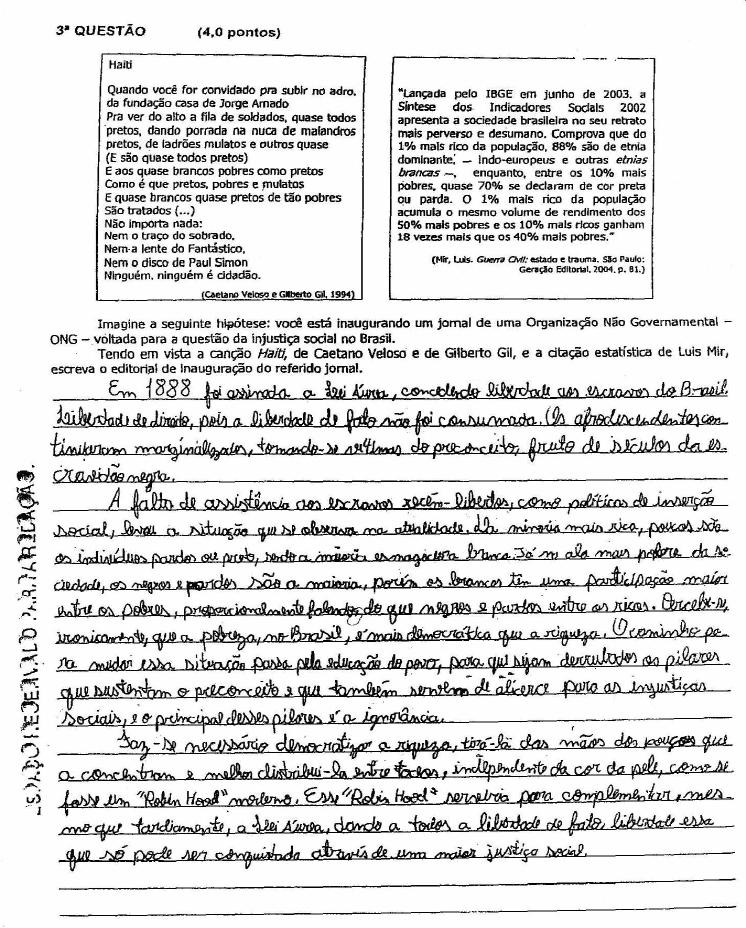 3ª QUESTÃO (4,0 pontos)
Haiti
Quando você for convidado pra subir no adro,
da fundação casa de Jorge Amado
Pra ver do alto a fila de soldados, quase todos
pretos, dando porrada na nuca de malandros
pretos, de ladrões mulatos e outros quase
(E são quase todos pretos)
E aos quase brancos pobres como pretos
Como é que pretos, pobres e mulatos
E quase brancos quase pretos de tão pobres
São tratados (...)
Não importa nada:
Nem o traço do sobrado,
Nem a lente do Fantástico,
Nem o disco de Paul Simon
Ninguém, ninguém é cidadão.
(Caetano Veloso e Gilberto Gil, 1994)
"Lançada pelo IBGE em junho de 2003, a
Síntese dos Indicadores Sociais 2002
apresenta a sociedade brasileira no seu retrato
mais perverso e desumano. Comprova que do
1% mais rico da população, 88% são de etnia
dominante, — indo-europeus e outras etnias
brancas —, enquanto, entre os 10% mais
pobres, quase 70% se declaram de cor preta
ou parda. O 1% mais rico da população
acumula o mesmo volume de rendimento dos
50% mais pobres e os 10% mais ricos ganham
18 vezes mais que os 40% mais pobres."
(Mir, Luis. Guerra Civil: estado e trauma. São Paulo:
Geração Editorial, 2004. p. 81.)
Imagine a seguinte hipótese: você está inaugurando um jornal de uma Organização Não Governamental –
ONG – voltada para a questão da injustiça social no Brasil.
Tendo em vista a canção Haiti, de Caetano Veloso e de Gilberto Gil, e a citação estatística de Luis Mir,
escreva o editorial de inauguração do referido jornal.
Em 1888 foi assinada a Lei Áurea, concedendo liberdade aos escravos do Brasil.
Liberdade de direito, pois a liberdade de fato não foi consumada. Os afrodescendentes con
tinuaram marginalizados, tornando-se vítimas do preconceito, fruto de séculos da es
cravidão negra.
A falta de assistência aos escravos recém-libertos, como políticas de inserção
social, levou a situação que se observa na atualidade. Da minoria mais rica, poucos são
os indivíduos pardos ou preto, sendo a maioria esmagadora branca. Já na ala mais pobre da so
ciedade, os negros e pardos são a maioria, porém os brancos têm uma participação maior
entre os pobres, proporcionalmente falando, do que negros e pardos entre os ricos. Percebe-se,
ironicamente, que a pobreza, no Brasil, é mais democrática que a riqueza. O caminho pa
ra mudar essa situação passa pela educação do povo, para que sejam derrubados os pilares
que sustentam o preconceito e que também servem de alicerce para as injustiças
sociais, e o principal desses pilares é a ignorância.
Faz-se necessário democratizar a riqueza, tirá-la das mãos dos poucos que
a concentram e melhor distribuí-la entre todos, independente da cor da pele, como se
fosse um "Robin Hood" moderno. Esse "Robin Hood" serviria para complementar, mes
mo que tardiamente, a Lei Áurea, dando a todos a liberdade de fato, liberdade essa
que só pode ser conquistada através de uma maior justiça social.